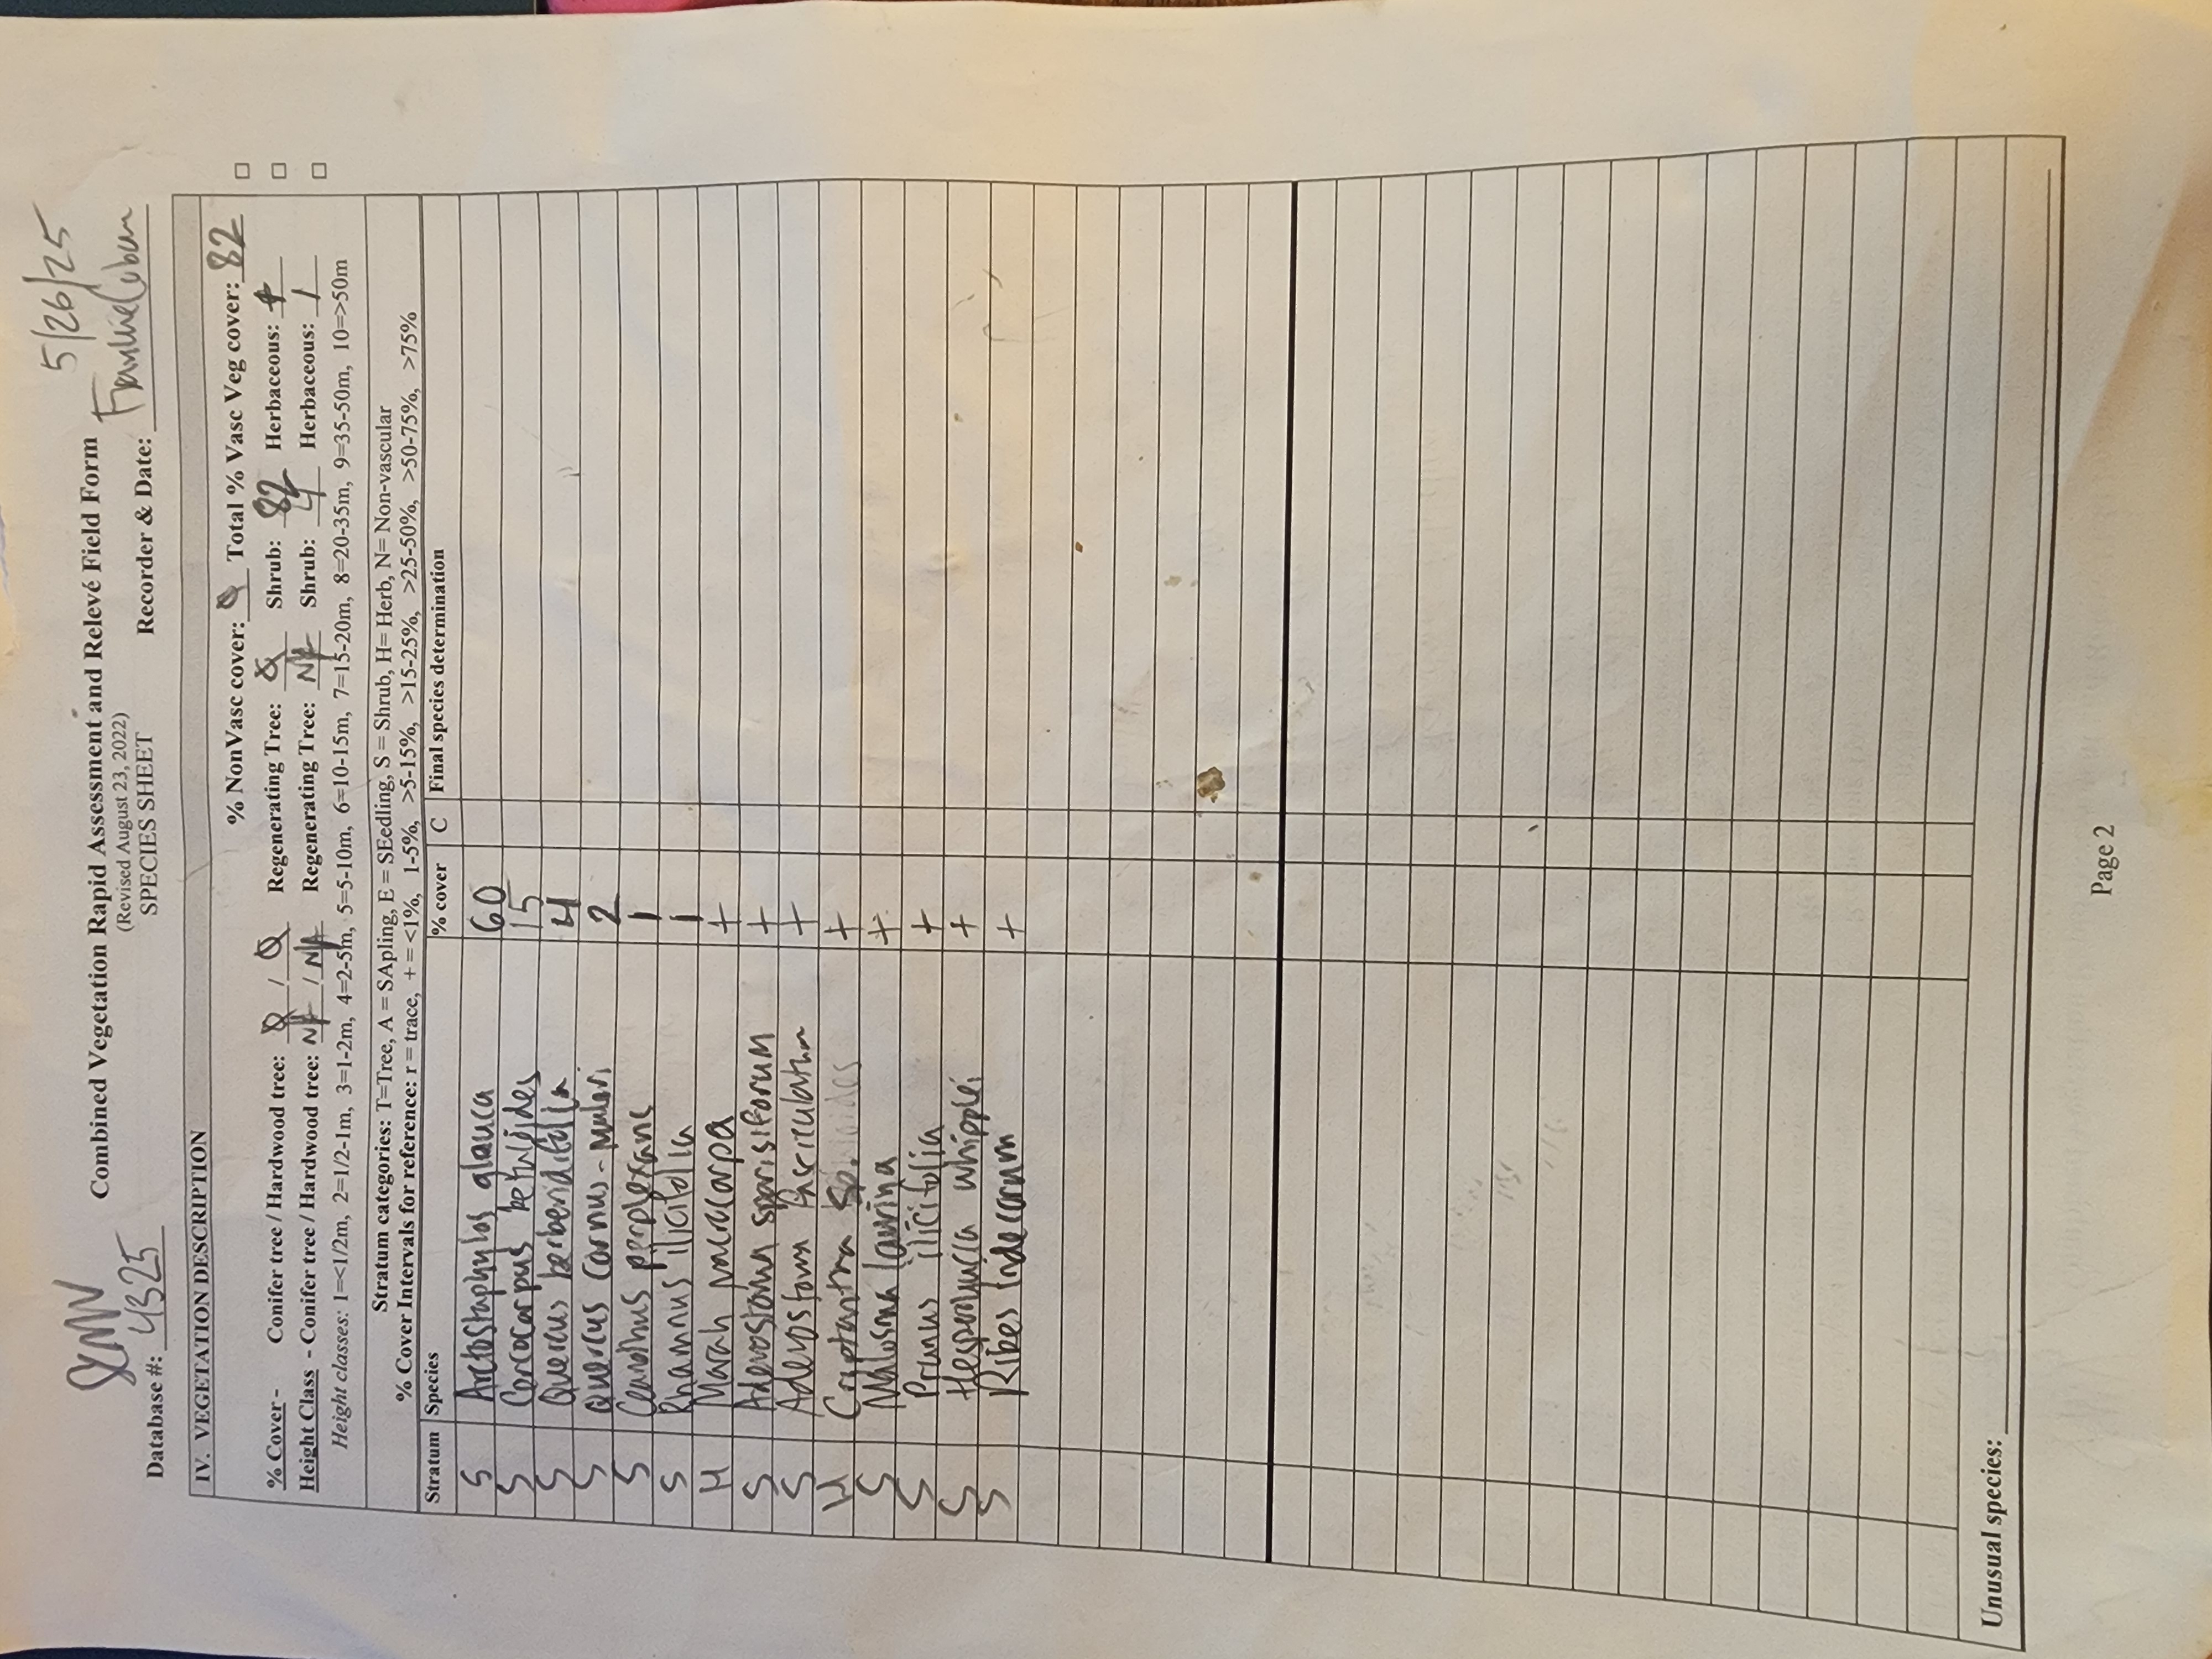 5/26/25
Combined Vegetation Rapid Assessment and Relevé Field Form
(Revised August 23, 2022)
SPECIES SHEET
Database #: 4325 Recorder & Date:
IV. VEGETATION DESCRIPTION
% NonVasc cover: 0 Total % Vasc Veg cover: 82
% Cover - Conifer tree / Hardwood tree: 0 / 0 Regenerating Tree: 0 Shrub: 82 Herbaceous: +
Height Class - Conifer tree / Hardwood tree: NA / NA Regenerating Tree: NA Shrub: 4 Herbaceous: 1
Height classes: 1=<1/2m, 2=1/2-1m, 3=1-2m, 4=2-5m, 5=5-10m, 6=10-15m, 7=15-20m, 8=20-35m, 9=35-50m, 10=>50m
Stratum categories: T=Tree, A = SApling, E = SEedling, S = Shrub, H= Herb, N= Non-vascular
% Cover Intervals for reference: r = trace, + = <1%, 1-5%, >5-15%, >15-25%, >25-50%, >50-75%, >75%
Stratum Species % cover C Final species determination
S Arctostaphylos glauca 60
S Cercocarpus betulides 15
S Quercus berberidifolia 4
S Quercus cornus-mulleri 2
S Ceanothus perplexans 1
S Rhamnus ilicifolia 1
H Marah macrocarpa +
S Adenostoma sparisiforum +
S Adenostoma fasciculatum +
H Cryptantha sp. +
S Malosma laurina +
S Prunus ilicifolia +
S Hesperoyucca whipplei +
S Ribes Indecorum +
Unusual species:
Page 2